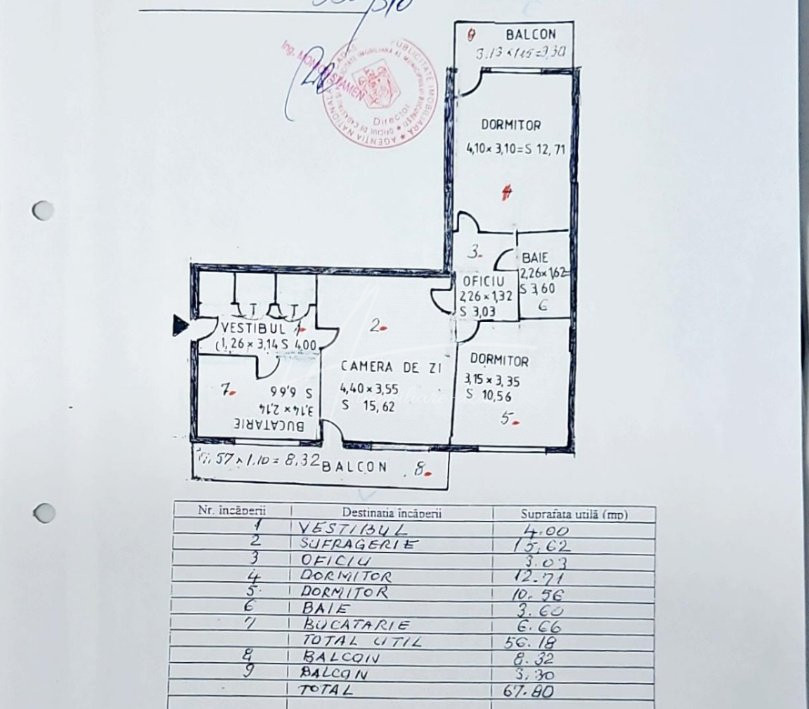 BALCON
3.13 × 1.15 = 3,30
DORMITOR
4,10 × 3,10 = S 12,71
4
3.
BAIE
2,26×1,62=
S 3,60
6
OFICIU
2,26 × 1,32
S 3,03
VESTIBUL 1
(1,26 × 3,14 S 4,00
2.
CAMERA DE ZI
4,40 × 3,55
S 15,62
DORMITOR
3,15 × 3,35
S 10,56
5.
7.
S 6,66
3,14 × 2,14
BUCATARIE
57 × 1,10 = 8,32 BALCON 8.
Ing.
Director
AGENTIA NATIONALA
PUBLICITATE IMOBILIARA
Nr. încăperii Destinatia încăperii Suprafata utilă (mp)
1 VESTIBUL 4.00
2 SUFRAGERIE 15,62
3 OFICIU 3.03
4 DORMITOR 12.71
5 DORMITOR 10.56
6 BAIE 3.60
7 BUCATARIE 6.66
TOTAL UTIL 56.18
8 BALCON 8.32
9 BALCON 3,30
TOTAL 67.80